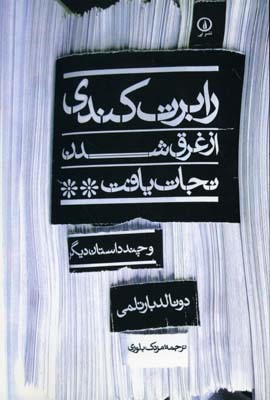 نشر نی
رابرت کندی
از غرق شدن
نجات یافت**
و چند داستان دیگر
دونالد بارتلمی
ترجمهٔ مزدک بلوری